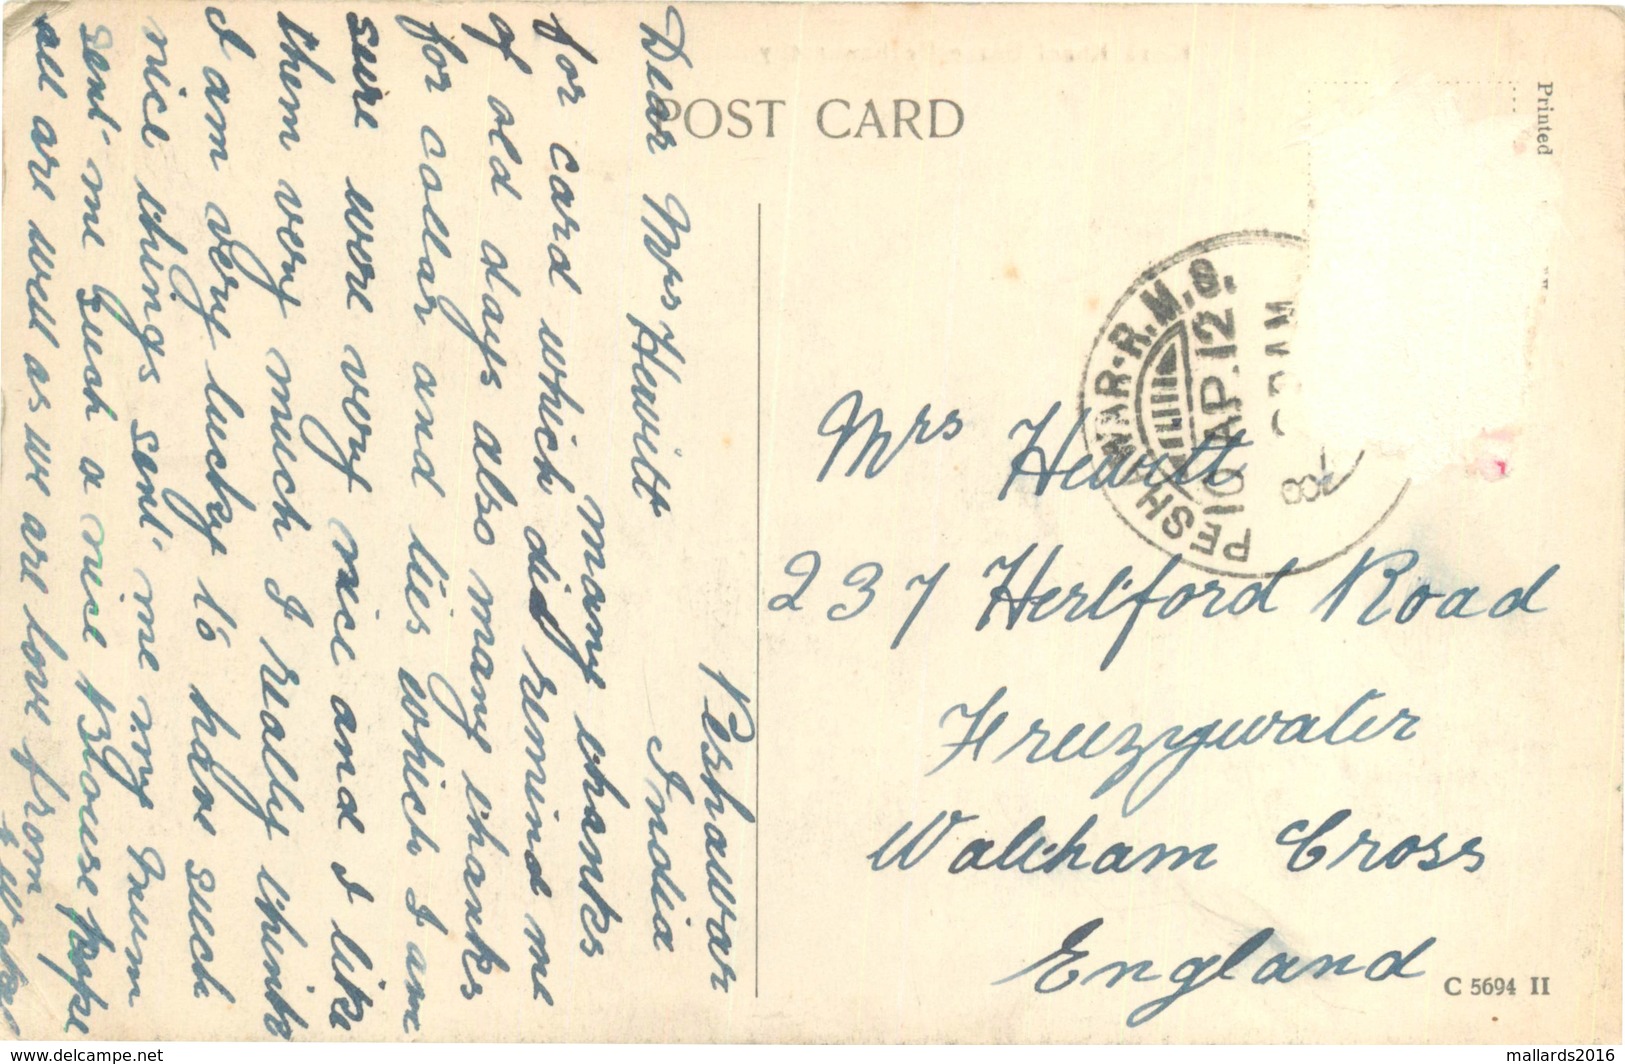 POST CARD
Printed
PESHAWAR·R.M.S.
10 AP.12
Peshawar
India
Dear Mrs Hewitt
many thanks
for card which did remind me
of old days also many thanks
for collar and ties which I am
sure were very nice and I like
them very much I really think
I am very lucky to have such
nice things sent me my Mum
sent me such a nice Blouse hope
all are well as we are love from
Mrs Hewitt
237 Hertford Road
Freezywater
Waltham Cross
England
C 5694 II
https://www.delcampe.net
mallards2016